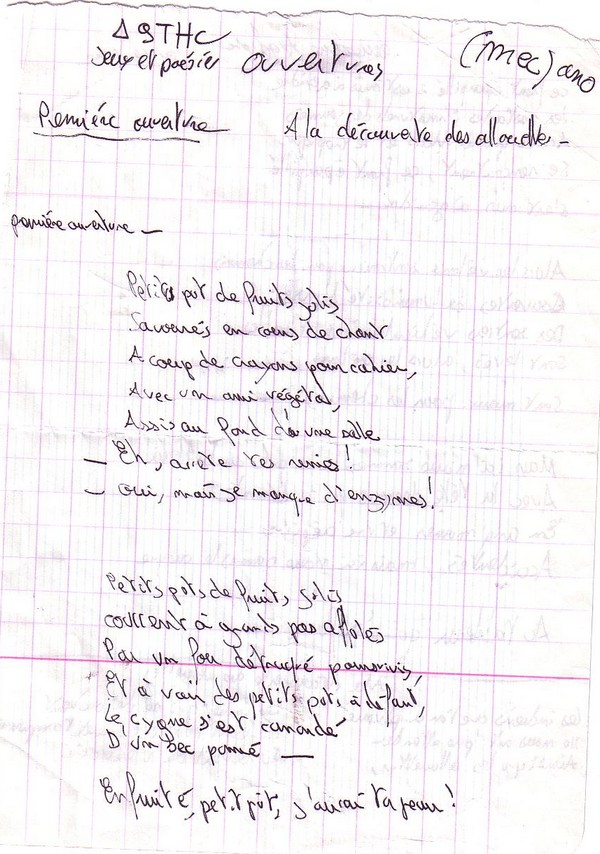 ASTHC
Jeux et poésies ouvertures (mec) ano
Première ouverture A la découverte des allouette -
première ouverture -
Petits pot de fruits jolis
Savourés en cours de chant
A coup de crayons pour cahier,
Avec un ami végétal,
Assis au fond d'une salle
- Eh, arrête tes !
- oui, mais je manque d'enzymes !
Petits pots de fruits, jolis
courrent à grands pas affolés
Par un fou détraqué poursuivis,
Et à voir des petits pots à defaut,
Le cygne s'est
D'un bec pommé -
En fruité, petit pot, j'aurai ta peau !